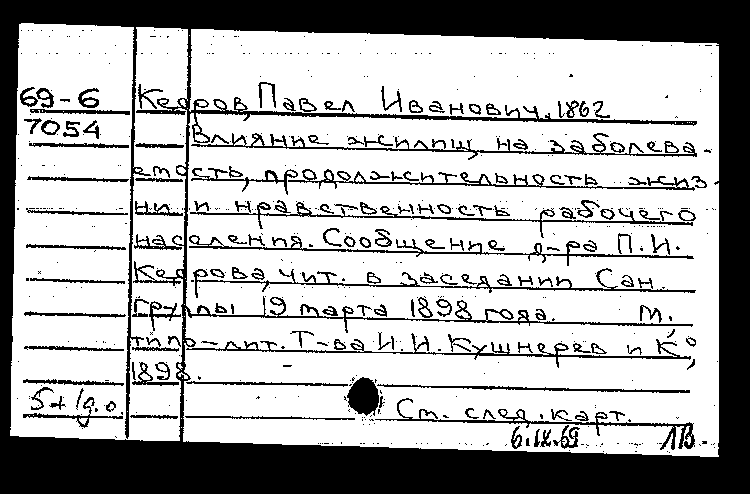 69-6 Кедров, Павел Иванович. 1862
7054 Влияние жилищ на заболева-
емость, продолжительность жиз-
ни и нравственность рабочего
населения. Сообщение д-ра П.И.
Кедрова, чит. в заседании Сан.
группы 19 марта 1898 года. М.
типо-лит. Т-ва И.Н. Кушнерев и К°,
1898.
Ст. след. карт.
6.IX.69 ЛВ.